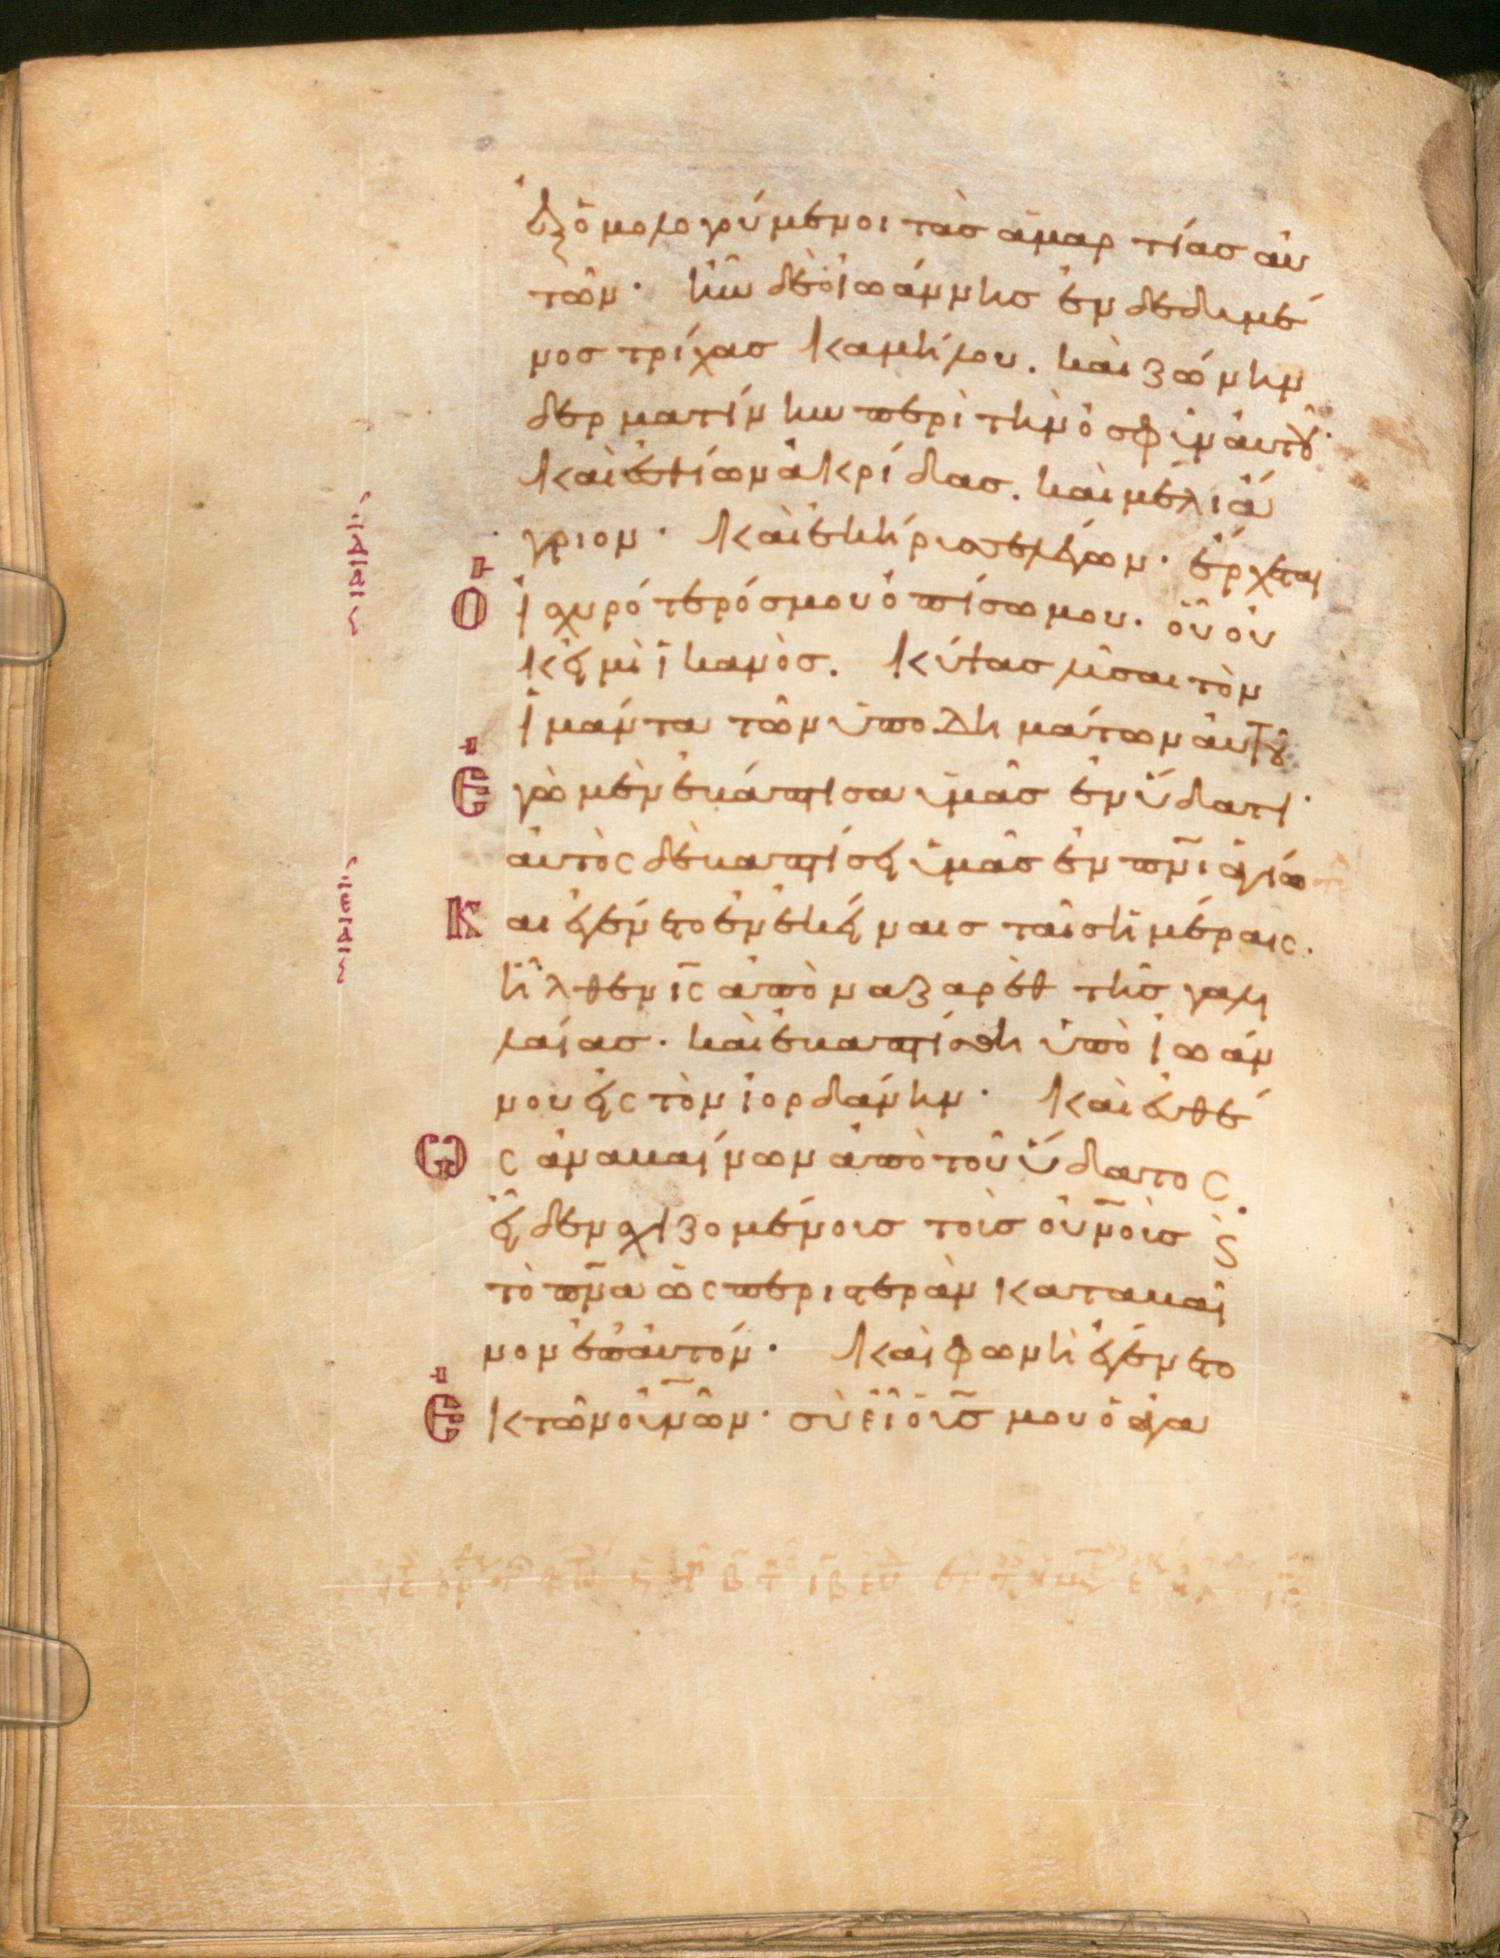 ἐξομολογούμενοι τὰς ἁμαρτίας αὐ
τῶν· ἦν δὲ ὁ ἰωάννης ἐνδεδυμέ
νος τρίχας καμήλου. καὶ ζώνην
δερματίνην περὶ τὴν ὀσφὺν αὐτοῦ·
καὶ ἐσθίων ἀκρίδας. καὶ μέλι ἄ
γριον· καὶ ἐκήρυσσε λέγων· ἔρχεται
Ὁ ἰσχυρότερός μου ὀπίσω μου. οὗ οὐ
κ εἰμὶ ἱκανὸς. κύψας λῦσαι τὸν
ἱμάντα τῶν ὑποδημάτων αὐτοῦ
Ἐγὼ μὲν ἐβάπτισα ὑμᾶς ἐν ὕδατι·
αὐτὸς δὲ βαπτίσει ὑμᾶς ἐν πν̅ι ἁγίω
Και ἐγένετο ἐν ἐκείναις ταῖς ἡμέραις.
ἦλθεν ι̅ς ἀπὸ ναζαρὲθ τῆς γαλι
λαίας. καὶ ἐβαπτίσθη ὑπὸ ἰωάν
νου εἰς τὸν ἰορδάνην· καὶ εὐθέ
Ως ἀναβαίνων ἀπὸ τοῦ ὕδατος
εἶδεν σχιζομένους τοὺς οὐν̅οὺς ϗ
τὸ πν̅α ὡς περιστερὰν καταβαῖ
νον ἐπ' αὐτόν· καὶ φωνὴ ἐγένετο
Ἐκ τῶν οὐν̅ῶν· σὺ εἶ ὁ υ̅ς μου ὁ ἀγα